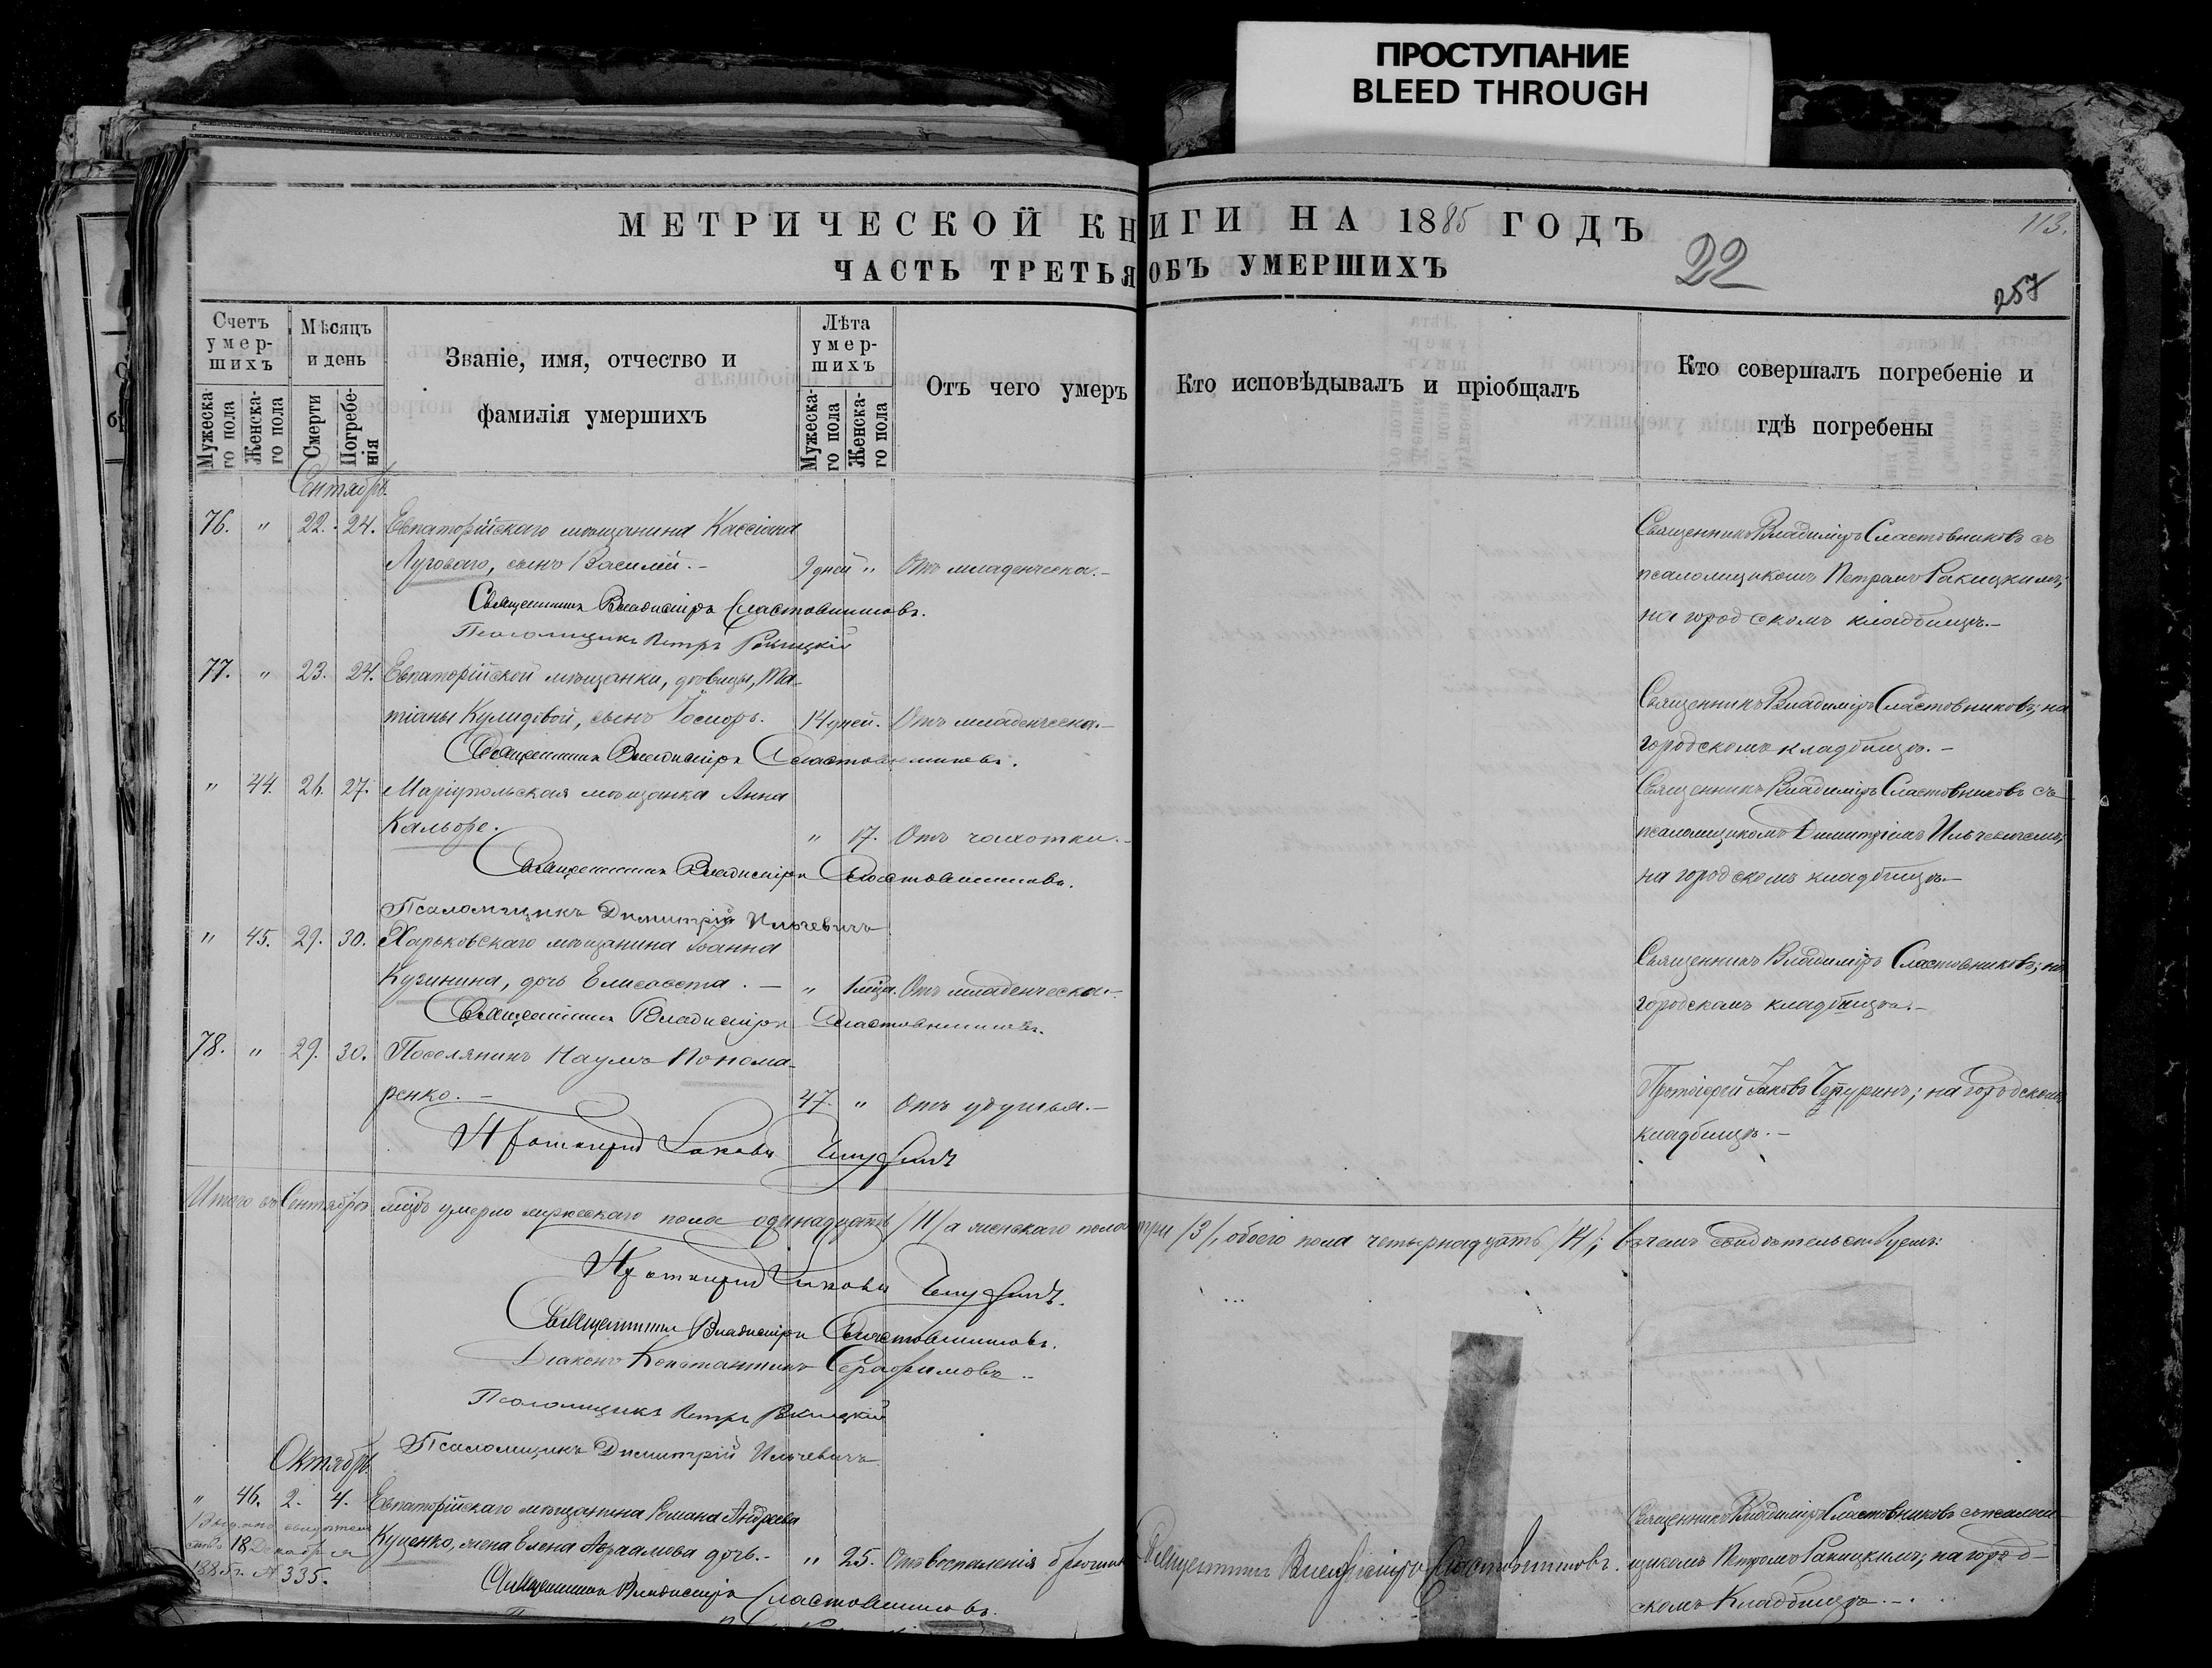 ПРОСТУПАНИЕ
BLEED THROUGH
МЕТРИЧЕСКОЙ КНИГИ НА 1885 ГОДЪ
113.
ЧАСТЬ ТРЕТЬЯ ОБЪ УМЕРШИХЪ
22
257
Счетъ умер-шихъ
Мужеска-го пола
Женска-го пола
Мѣсяцъ и день
Смерти
Погребе-нія
Званіе, имя, отчество и
фамилія умершихъ
Лѣта умер-шихъ
Мужеска-го пола
Женска-го пола
Отъ чего умеръ
Кто исповѣдывалъ и пріобщалъ
Кто совершалъ погребеніе и
гдѣ погребены
Сентябрь.
76. " 22. 24. Евпаторійскаго мѣщанина Кассіана
Луговаго, сынъ Василій. 9 дней " Отъ младенческа.
Священникъ Владиміръ Сластовниковъ.
Псаломщикъ Петръ Ракицкій
Священникъ Владиміръ Сластовниковъ съ
псаломщикомъ Петромъ Ракицкимъ;
на городскомъ кладбищѣ.
77. " 23. 24. Евпаторійской мѣщанки, вдовицы, Та-
тіаны сынъ 14 дней. Отъ младенческа.
Священникъ Владиміръ Сластовниковъ.
Священникъ Владиміръ Сластовниковъ; на
городскомъ кладбищѣ.
" 44. 26. 27. Маріупольская мѣщанка Анна
Кальоре. " 17. Отъ чахотки.
Священникъ Владиміръ Сластовниковъ.
Псаломщикъ Димитрій Ильчевичъ
Священникъ Владиміръ Сластовниковъ съ
псаломщикомъ Димитріемъ Ильчевичемъ;
на городскомъ кладбищѣ.
" 45. 29. 30. Харьковскаго мѣщанина Іоанна
Кузинина, дочь Елисавета. " 1 мѣца. Отъ младенческа.
Священникъ Владиміръ Сластовниковъ.
Священникъ Владиміръ Сластовниковъ; на
городскомъ кладбищѣ.
78. " 29. 30. Поселянинъ Наумъ Понома-
ренко. 47. " Отъ удушья.
Протоіерей Іаковъ Чепуринъ
Протоіерей Іаковъ Чепуринъ; на городскомъ
кладбищѣ.
Итого въ Сентябрѣ мѣцѣ умерло мужескаго пола одинадцать /11/ а женскаго пола три /3/, обоего пола четырнадцать /14/; въ чемъ свидѣтельствуемъ:
Протоіерей Іаковъ Чепуринъ.
Священникъ Владиміръ Сластовниковъ.
Діаконъ Константинъ Серафимовъ
Псаломщикъ Петръ Ракицкій
Псаломщикъ Димитрій Ильчевичъ
Октябрь.
" 46. 2. 4. Евпаторійскаго мѣщанина Романа Андреева
Куценко, жена Елена Авраамова дочь. " 25. Отъ воспаленія брюшины
Священникъ Владиміръ Сластовниковъ.
Выдано свидѣтель-
ство 18 Декабря
1885 г. № 335.
Священникъ Владиміръ Сластовниковъ.
Священникъ Владиміръ Сластовниковъ съ псалом-
щикомъ Петромъ Ракицкимъ; на город-
скомъ кладбищѣ.